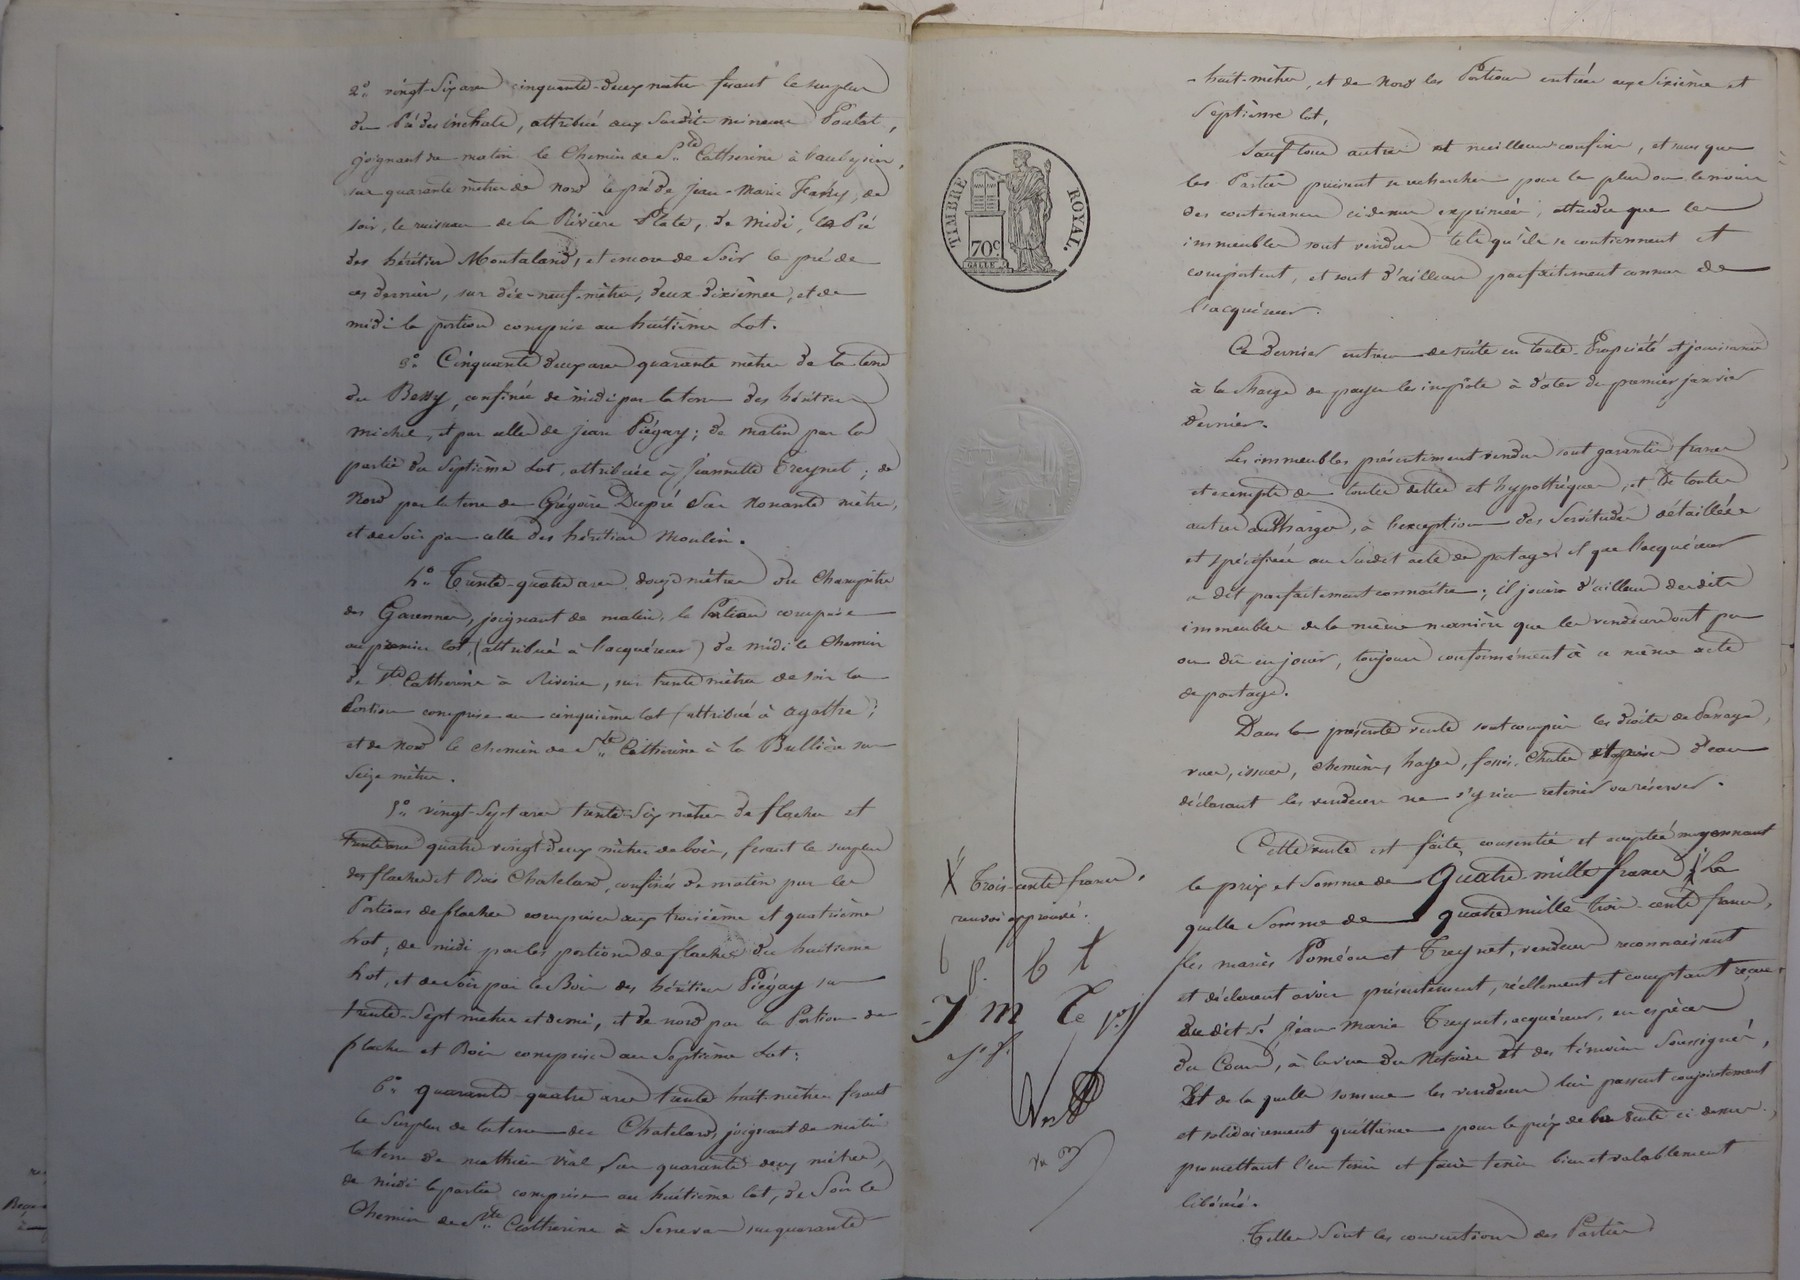 2° vingt-six ares cinquante-deux mètres faisant le surplus
du Pré des inchals, attribué aux susdits mineurs Poulat,
joignant de matin le Chemin de Ste Catherine à
sur quarante mètres de nord le pré de jean-Marie, de
soir, le ruisseau de la Rivière Plate, de midi, le Pré
des héritiers Montaland, et encore de Soir le pré de
ces derniers, sur dix-neuf-mètres, deux-dixièmes, et de
midi la portion comprise au huitième Lot.
3° Cinquante deux ares quarante mètres de la terre
du Bessy, confinée de midi par la terre des héritiers
Michel, et par celle de jean Piégay; de matin par la
partie du Septième Lot, attribuée à Jeannette Treynet; de
Nord par la terre de Grégoire Dupré Sur Nonante mètres,
et de Soir par celle des héritiers Moulin.
4° Trente-quatre ares douze mètres du Champ
des Garennes, joignant de matin, la Portion comprise
au premier lot, (attribué à l'acquéreur) de midi le Chemin
de Ste Catherine à Riverie, sur trente mètres de soir la
Portion comprise au cinquième lot (attribué à agathe;
et de Nord le chemin de Ste Catherine à la Bullière sur
Seize mètres.
5° vingt-Sept ares trente Six mètres de flaches et
trente ares quatre vingt-deux mètres de bois, faisant le surplus
des flaches et Bois Chatelard, confinés de matin par les
Portions de flaches comprises aux troisième et quatrième
Lot; de midi par les portions de flaches du huitième
Lot, et de Soir par le Bois des héritiers Piégay sur
trente-Sept mètres et demi, et de nord par la Portion de
flaches et Bois comprise au Septième Lot;
6° quarante-quatre ares trente huit-mètres faisant
le Surplus de la terre du Chatelard, joignant de matin
la terre de mathieu Vial Sur quarante deux mètres,
de midi la partie comprise au huitième lot, de Soir le
Chemin de Ste Catherine à sur quarante
-huit-mètres, et de Nord les Portions entrées aux Sixième et
Septième lot,
Sauf tous autres et meilleurs confins, et sans que
les Parties puissent se rechercher pour le plus ou le moins
des contenances ci-dessus exprimées, attendu que les
immeubles sont vendus tels qu'ils se contiennent et
comportent, et sont d'ailleurs parfaitement connus de
l'acquéreur.
Ce Dernier entrera de suite en toute Propriété et jouissance
à la charge de payer les impôts à dater du premier janvier
Dernier.
Les immeubles présentement vendus sont garantis francs
et exempts de toutes dettes et hypothèques, et de toutes
autres Charges, à l'exception des Servitudes détaillées
et spécifiées au Susdit acte de partage et que l'acquéreur
a dit parfaitement connaître; il jouira d'ailleurs desdits
immeubles de la même manière que les vendeurs ont pu
ou dû en jouir, toujours conformément à ce même acte
de partage.
Dans la présente vente sont compris les droits de Passage,
vues, issues, chemins, hayes, fossés, Chutes et prises d'eau
déclarant les vendeurs ne s'y rien retenir ou réserver.
Cette vente est faite, consentie et acceptée moyennant
le prix et Somme de Quatre-mille francs X La
quelle Somme de quatre mille trois-cents francs,
les mariés Poméon et Treynet, vendeurs reconnaissent
et déclarent avoir présentement, réellement et comptant reçue
du dit Sr Jean Marie Treynet, acquéreur, en espèces
du Cours, à la vue du Notaire et des témoins Soussignés,
Et de la quelle somme les vendeurs lui passent conjointement
et solidairement quittance pour le prix de la vente ci dessus,
promettant l'en tenir et faire tenir bien et valablement
libéré.
Telles Sont les conventions des Parties
TIMBRE ROYAL.
70c
GALLE
X Trois-cents francs,
renvoi approuvé.